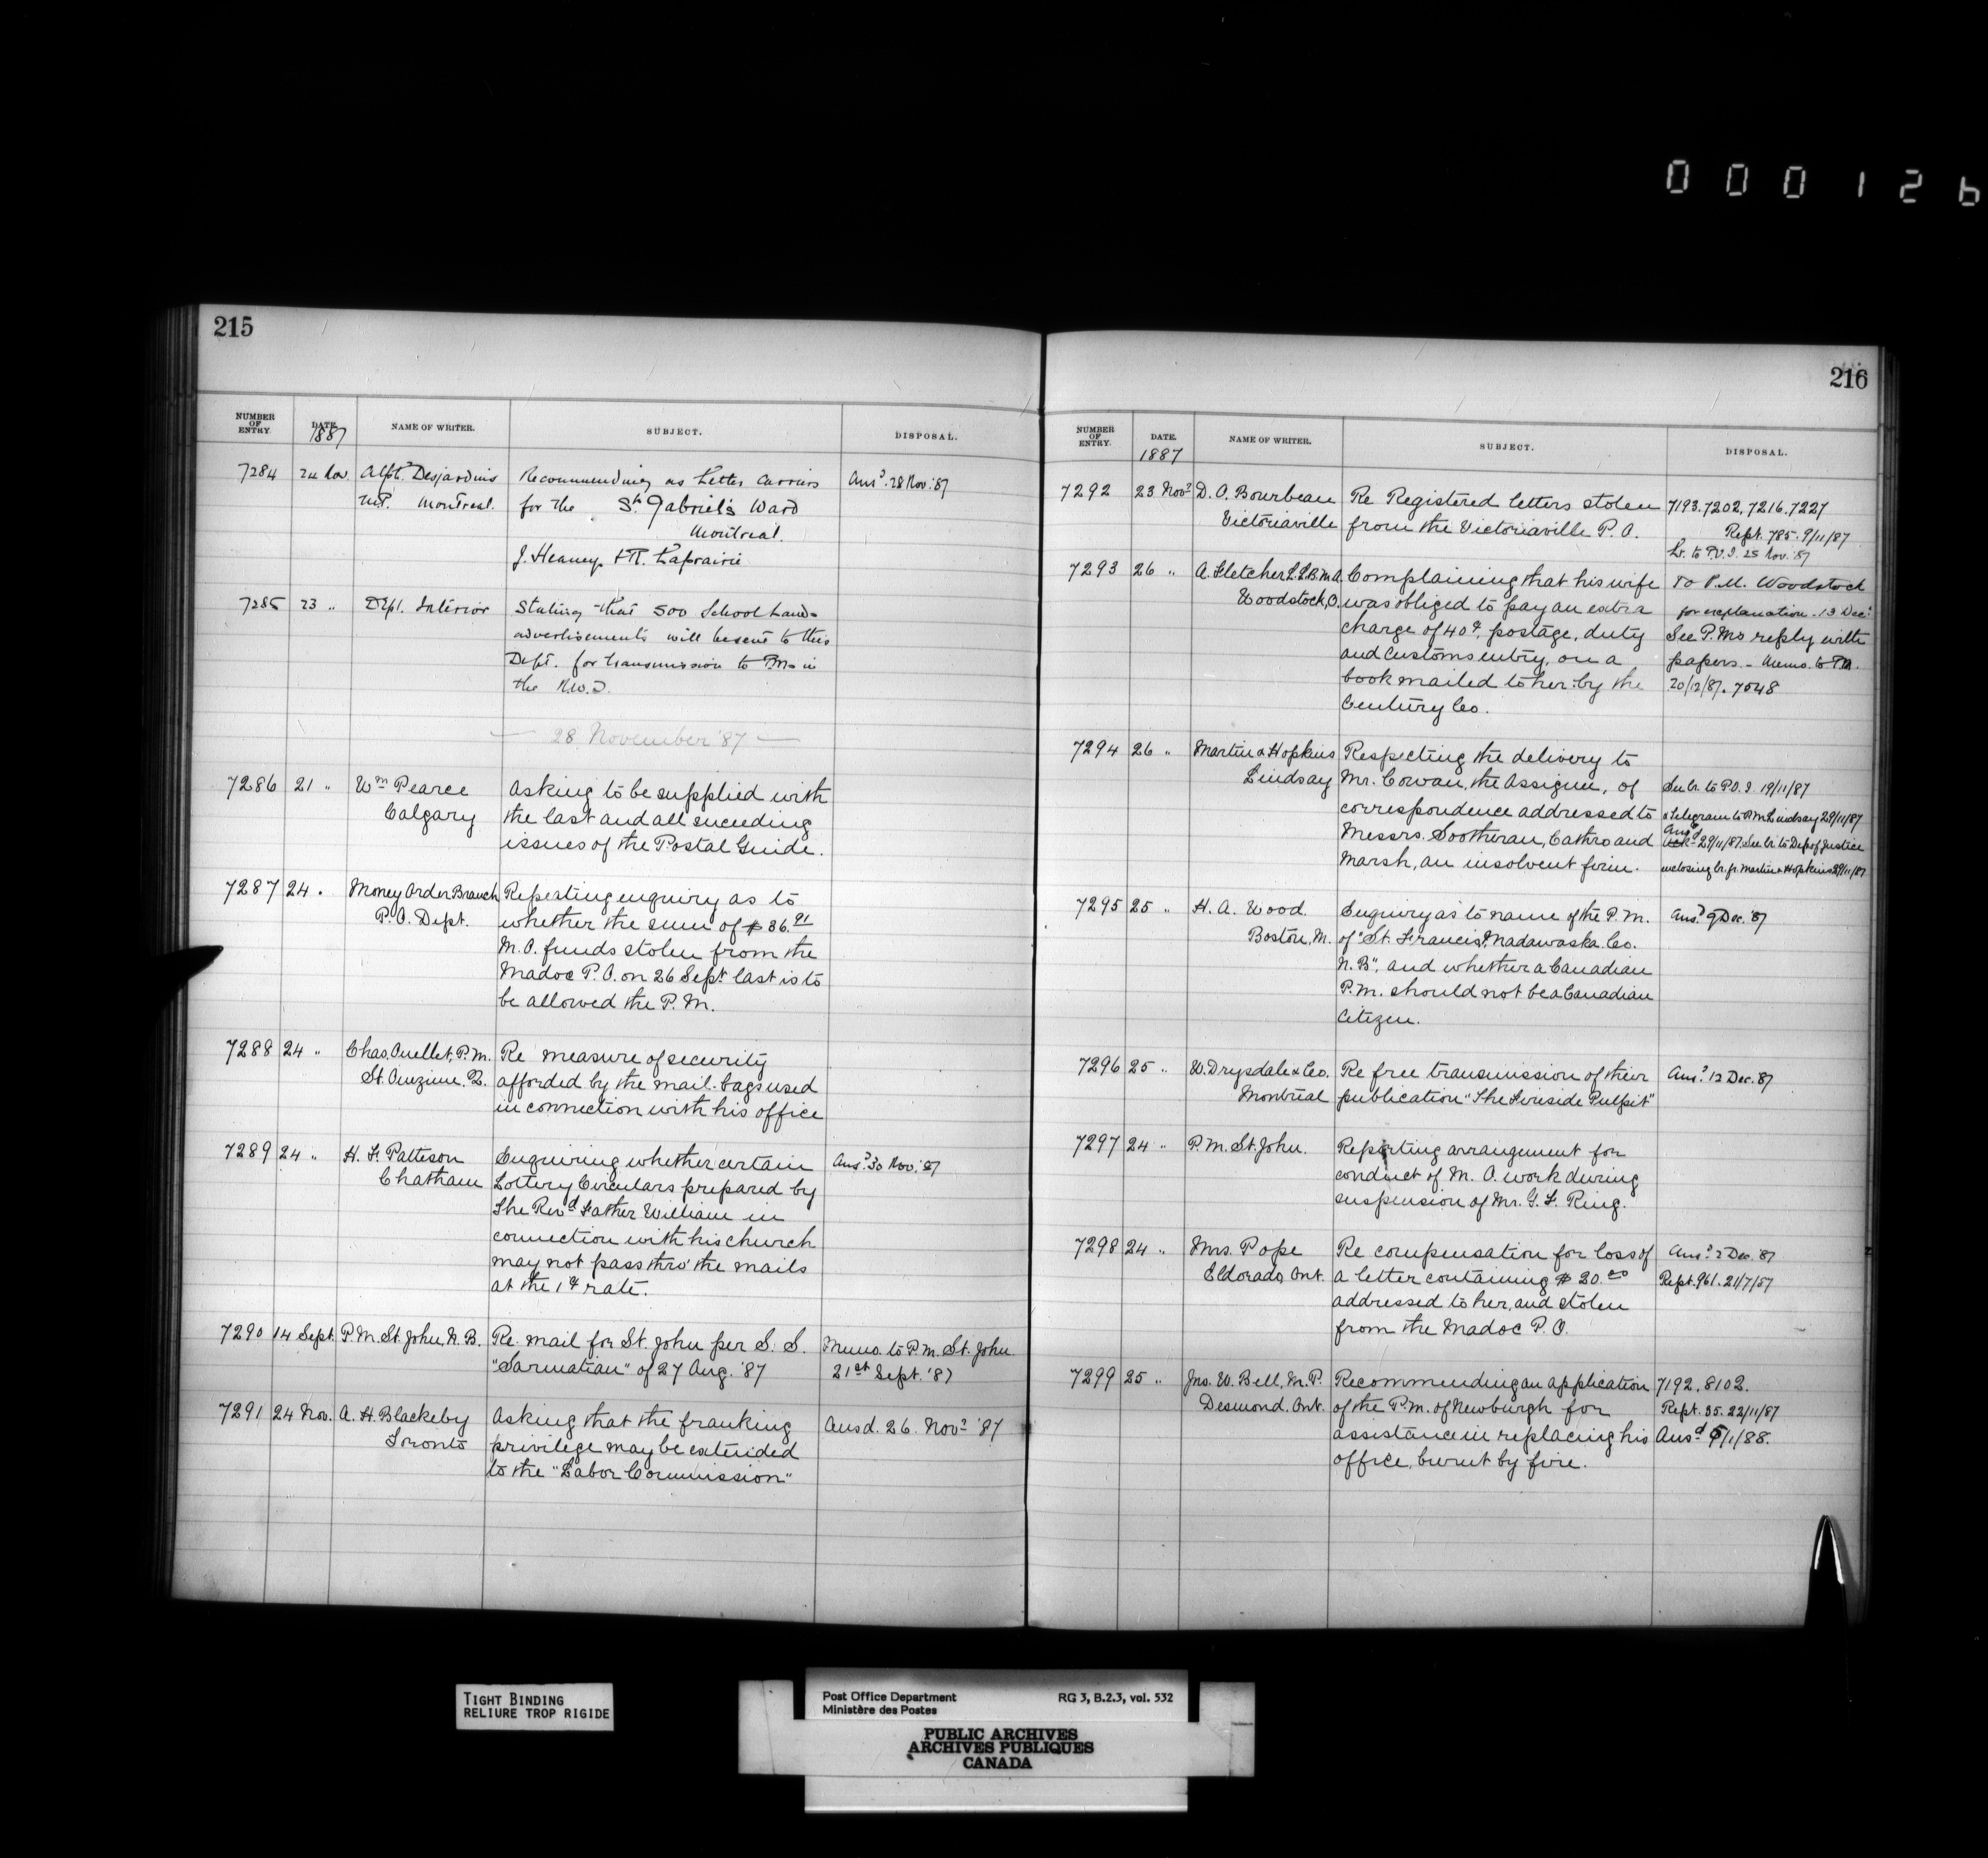 000126
215
NUMBER OF ENTRY.
DATE.
1887
NAME OF WRITER.
SUBJECT.
DISPOSAL.
7284 24 Nov. Alph. Desjardins Recommending as Letter Carriers Ansd. 28 Nov. '87
M.P. Montreal. for the St. Gabriel's Ward
Montreal.
J. Heaney & R. Laprairie
7285 23 " Dept. Interior Stating that 500 School Lands
advertisements will be sent to this
Dept. for transmission to PMs in
the N.W.T.
— 28 November '87 —
7286 21 " Wm Pearce Asking to be supplied with
Calgary the last and all suceeding
issues of the Postal Guide.
7287 24 " Money Order Branch Repeating enquiry as to
P.O. Dept. whether the sum of $36.91
M.O. funds stolen from the
Madoc P.O. on 26 Sept. last is to
be allowed the P.M.
7288 24 " Chas. Ouellet, P.M. Re measure of security
St. Onezime. Q. afforded by the mail-bags used
in connection with his office
7289 24 " H. F. Patteson Enquiring whether certain Ansd. 30 Nov. '87
Chatham Lottery Circulars prepared by
The Revd Father William in
connection with his church
may not pass thro' the mails
at the 1¢ rate.
7290 14 Sept. P.M. St. John, N.B. Re mail for St. John per S.S. Memo. to P.M. St. John
"Sarmatian" of 27 Aug. '87 21st Sept. '87
7291 24 Nov. A. H. Blackeby Asking that the franking Ansd. 26. Novr '87
Toronto privilege may be extended
to the "Labor Commission"
216
NUMBER OF ENTRY.
DATE.
1887
NAME OF WRITER.
SUBJECT.
DISPOSAL.
7292 23 Novr D. O. Bourbeau Re Registered letters stolen 7193.7202.7216.7227
Victoriaville from the Victoriaville P.O. Rept. 785. 9/11/87
Lr. to P.O.I. 25 Nov. '87
7293 26 " A. Fletcher L.L.B. M.A. Complaining that his wife To P.M. Woodstock
Woodstock, O. was obliged to pay an extra for explanation. 13 Dec.
charge of 40¢, postage, duty See P.Ms reply with
and customs entry, on a papers. - Memo. to
book mailed to her by the 20/12/87. 7048
Century Co.
7294 26 " Martin & Hopkins Respecting the delivery to
Lindsay Mr. Cowan, the Assignee, of See lr. to P.O.I. 19/11/87
correspondence addressed to & telegram to P.M. Lindsay 29/11/87
Messrs. Sootheran, Cathro and Ansd 29/11/87. See lr. to Dep of Justice
Marsh, an insolvent firm. enclosing lr. fr. Martin & Hopkins 29/11/87
7295 25 " H. A. Wood. Enquiry as to name of the P.M. Ansd. 9 Dec. '87
Boston, M. of "St. Francis, Madawaska Co.
N.B", and whether a Canadian
P.M. should not be a Canadian
Citizen.
7296 25 " W. Drysdale & Co. Re free transmission of their Ansd. 12 Dec. 87
Montreal publication "The Fireside Pulpit"
7297 24 " P.M. St. John. Reporting arrangement for
conduct of M.O. work during
suspension of Mr. G. F. Ring.
7298 24 " Mrs. Pope Re compensation for loss of Ansd. 2 Dec. '87
Eldorado, Ont. a letter containing $20.00 Rept. 961. 21/7/87
addressed to her, and stolen
from the Madoc P.O.
7299 25 " Jno. W. Bell, M.P. Recommending an application 7192. 8102.
Desmond. Ont. of the P.M. of Newburgh for Rept. 35. 22/11/87
assistance in replacing his Ansd /1/88.
office, burnt by fire.
TIGHT BINDING
RELIURE TROP RIGIDE
Post Office Department RG 3, B.2.3, vol. 532
Ministère des Postes
PUBLIC ARCHIVES
ARCHIVES PUBLIQUES
CANADA